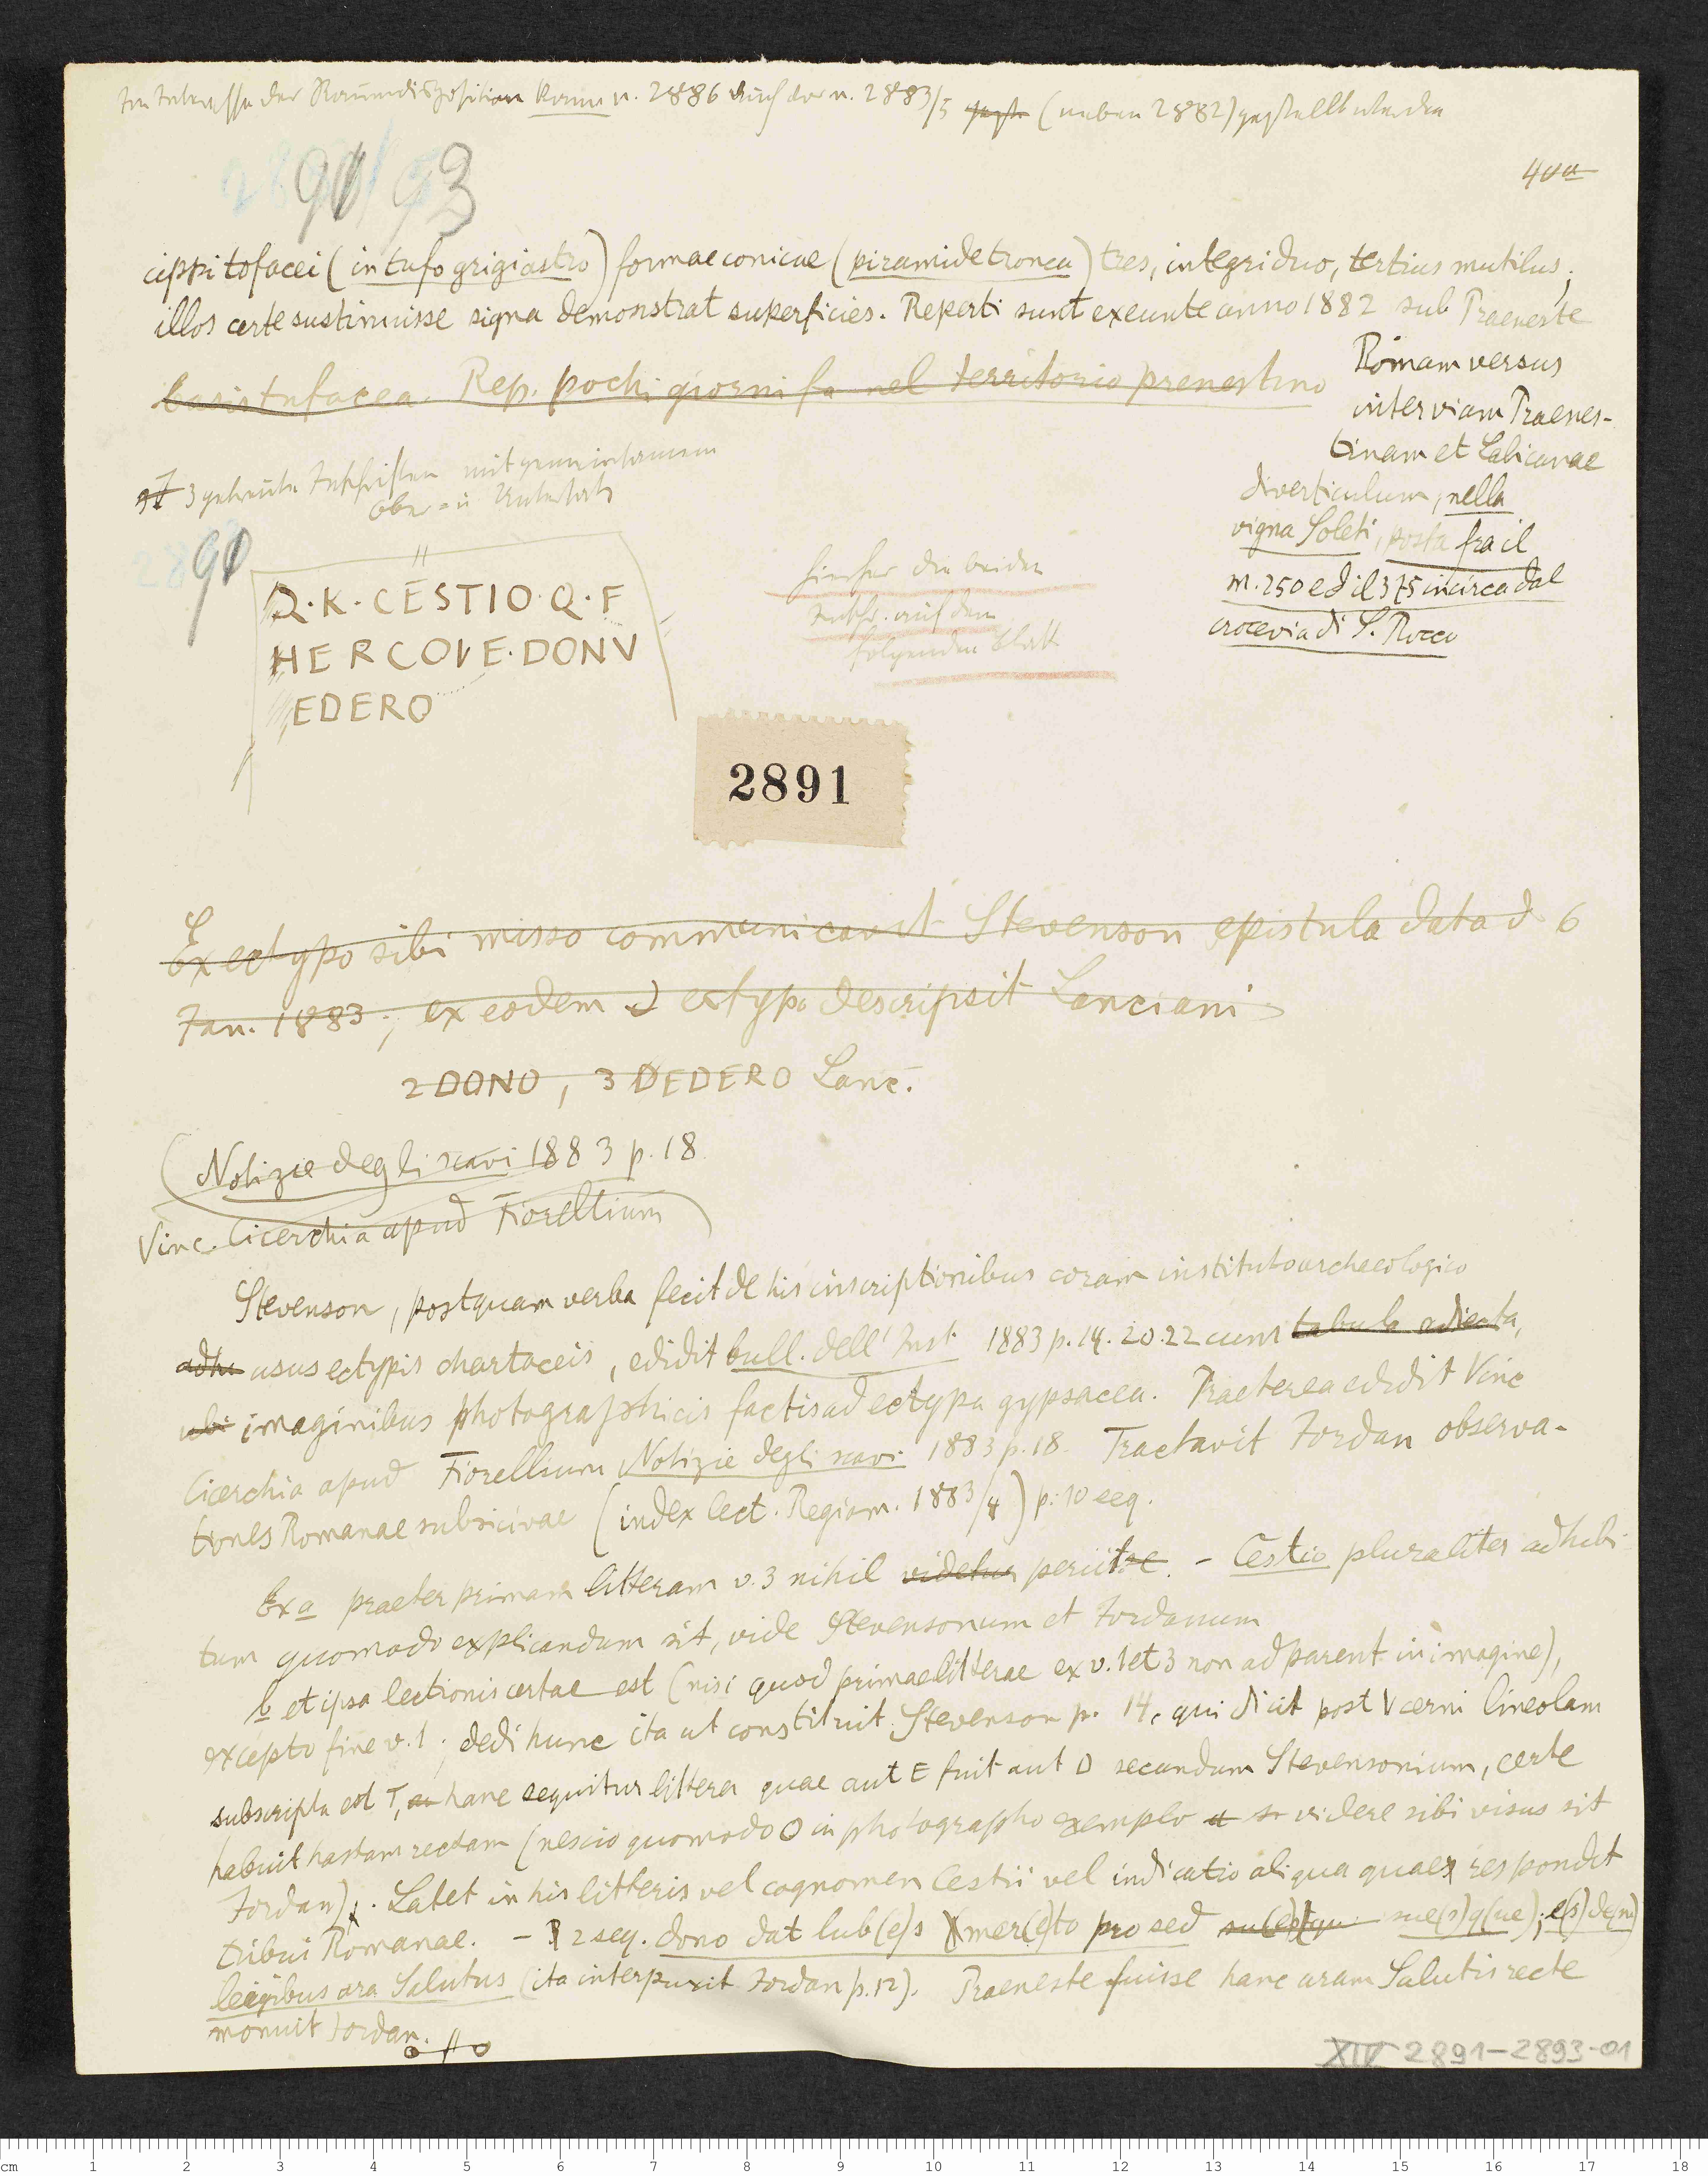 Im Interesse der Raumdisposition kann n. 2886 auch vor n. 2883/5 (neben 2882) gestellt werden
2891/93
400a
cippi tofacei (in tufo grigiastro) formae conicae (piramide tronca) tres, integri duo, tertius mutilus;
illos certe sustinuisse signa demonstrat superficies. Reperti sunt exeunte anno 1882 sub Praeneste
Romam versus
inter viam Praenes-
tinam et Labicanae
diverticulum, nella
vigna Soleti, posta fra il
m. 250 ed il 375 incirca dal
crocevia di S. Rocco
basis tufacea. Rep. pochi giorni fa nel territorio prenestino
3 getrennte Inschriften mit gemeinsamem
Ober- u Untersatz
2891
Q·K·CESTIO·Q·F
HERCOLE·DONV
EDERO
hierher die beiden
Inschr. auf dem
folgenden Blatt
2891
Ex ectypo sibi misso communicavit Stevenson epistula data d 6
Jan. 1883; ex eodem ectypo descripsit Lanciani
2 DONO, 3 DEDERO Lanc.
(Notizie degli scavi 1883 p. 18
Vinc. Cicerchia apud Fiorellium)
Stevenson, postquam verba fecit de his inscriptionibus coram instituto archaeologico
usus ectypis chartaceis, edidit bull. dell' Inst. 1883 p. 14. 20. 22 cum tabula adiecta,
ubi imaginibus photographicis factis ad ectypa gypsacea. Praeterea edidit Vinc
Cicerchia apud Fiorellium Notizie degli scavi 1883 p. 18. Tractavit Jordan observa-
tiones Romanae subsicivae (index lect. Regiom. 1883/4) p. 10 seq.
Ex a praeter primam litteram v. 3 nihil videtur periit. - Cestio pluraliter adhibi-
tum quomodo explicandum sit, vide Stevensonum et Jordanum
b et ipsa lectionis certae est (nisi quod primae litterae ex v. 1 et 3 non adparent in imagine),
excepto fine v. 1; dedi hunc ita ut constituit Stevenson p. 14, qui dicit post V cerni lineolam
subscripta est T, hanc sequitur littera quae aut E fuit aut D secundum Stevensonium, certe
habuit hastam rectam (nescio quomodo O in photographo exemplo videre sibi visus sit
Jordan). Latet in his litteris vel cognomen Cestii vel indicatio aliqua quae respondet
tribui Romanae. - 2 seq. dono dat lub(e)s mer(e)to pro sed sue(s)q(ue); e(s)de(m)
leigibus ara Salutus (ita interpunxit Jordan p. 12). Praeneste fuisse hanc aram Salutis recte
monuit Jordan.
XIV 2891-2893-01
cm 1 2 3 4 5 6 7 8 9 10 11 12 13 14 15 16 17 18